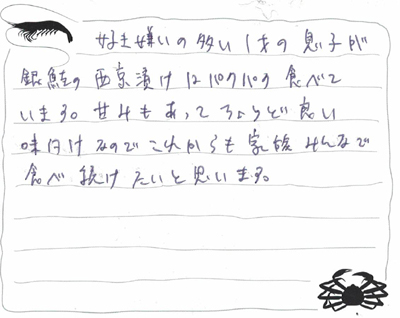 好き嫌いの多い1才の息子が
銀鮭の西京漬けはパクパク食べて
います。甘みもあってちょうど良い
味付けなのでこれからも家族みんなで
食べ続けたいと思います。